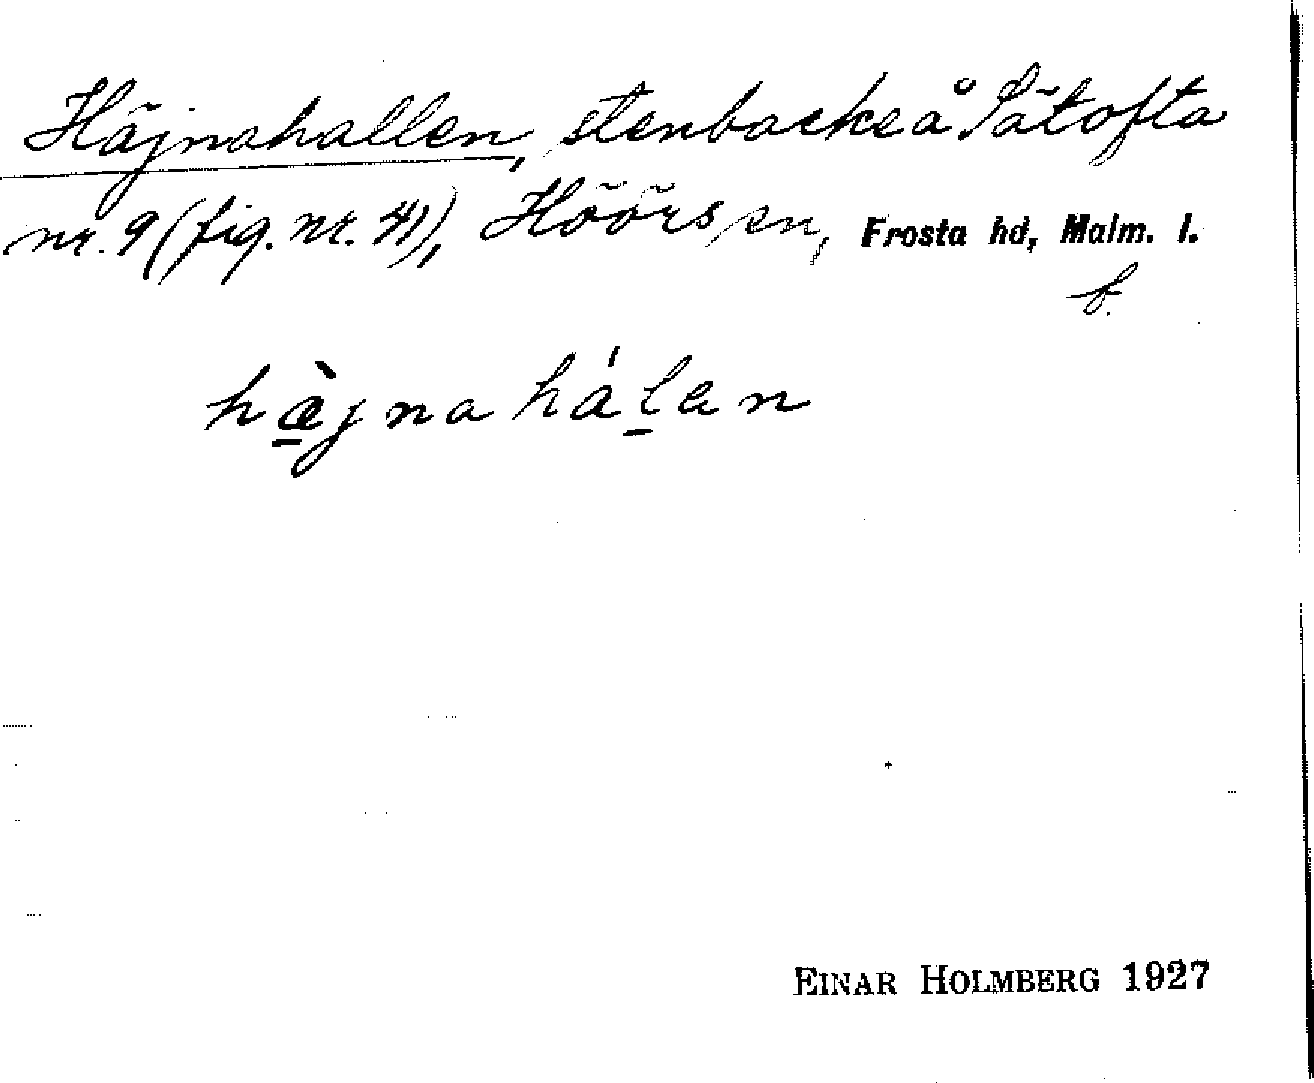 Häjnahallen, stenbacke å Sätofta
nr. 9 (fig. nr. 41), Höörs sn, Frosta hd, Malm. l.
b.
hæ̀jnahálan
EINAR HOLMBERG 1927